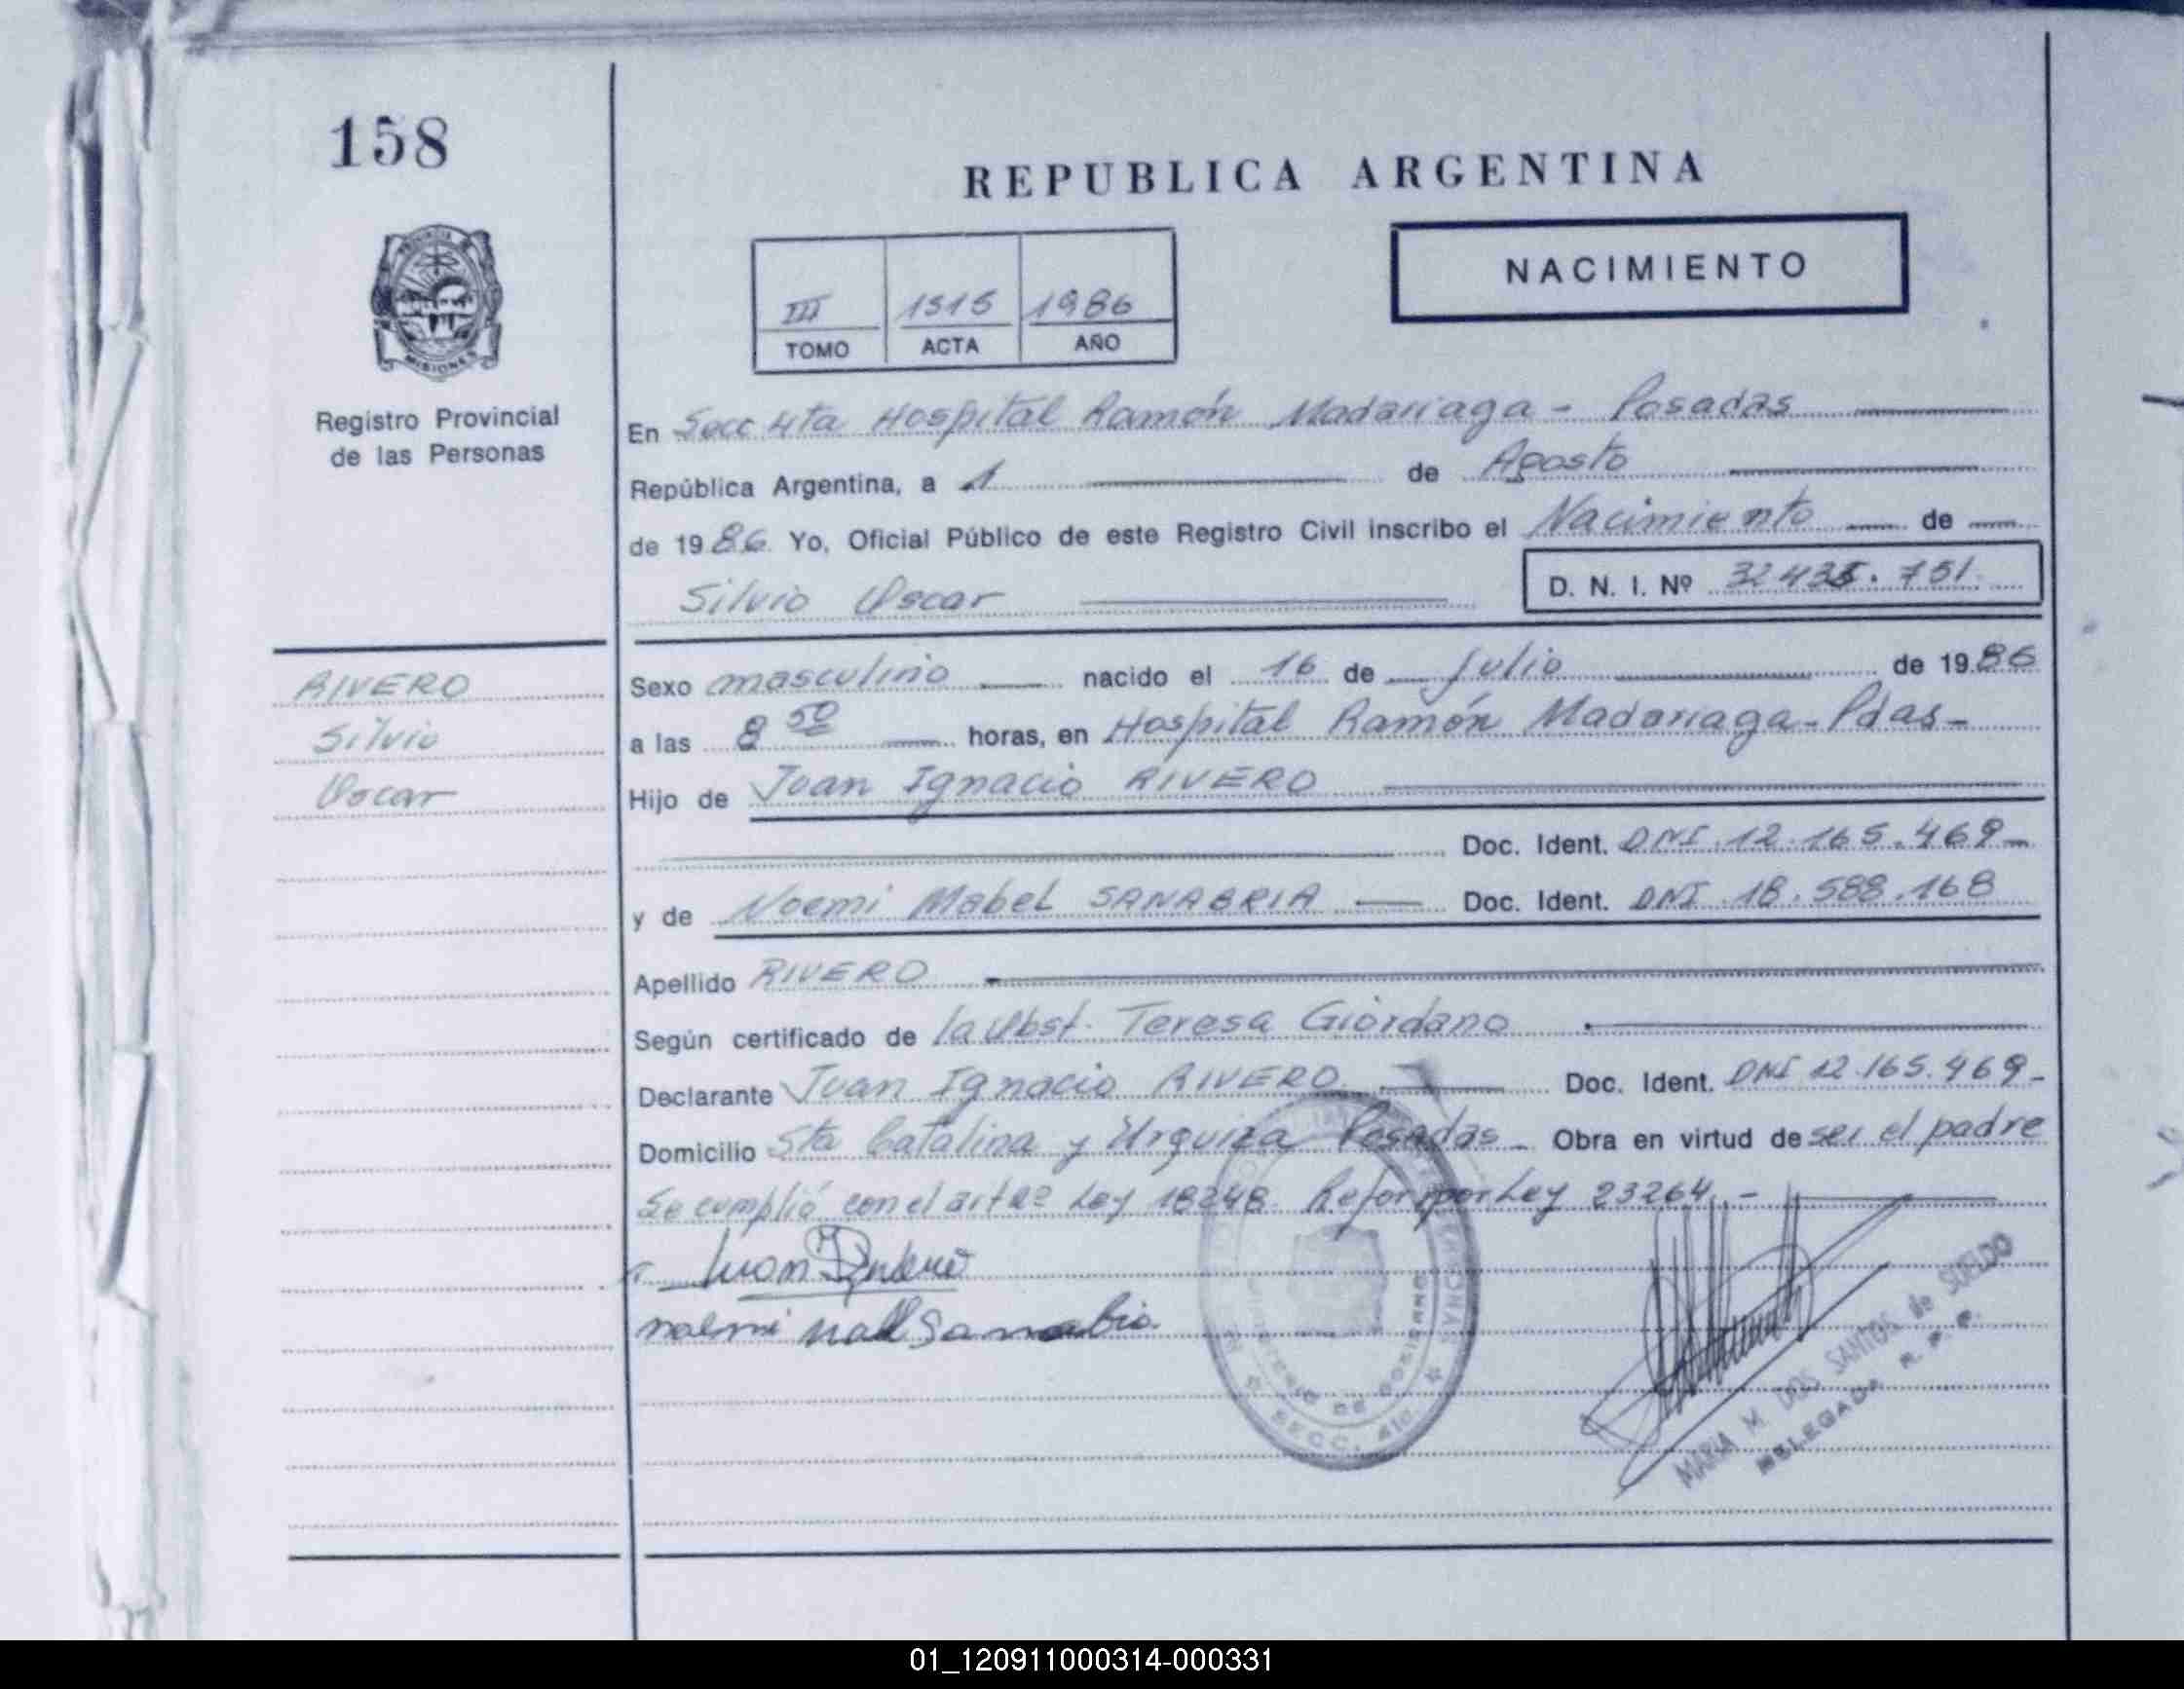 158
REPUBLICA ARGENTINA
NACIMIENTO
III 1515 1986
TOMO ACTA AÑO
PROVINCIA DE
MISIONES
Registro Provincial
de las Personas
En Secc 4ta Hospital Ramón Madariaga - Posadas
República Argentina, a 1 de Agosto
de 1986 Yo, Oficial Público de este Registro Civil inscribo el Nacimiento de
Silvio Oscar
D. N. I. Nº 32.435.751
RIVERO
Silvio
Oscar
Sexo masculino nacido el 16 de Julio de 1986
a las 8 50 horas, en Hospital Ramón Madariaga - Pdas -
Hijo de Juan Ignacio RIVERO
Doc. Ident. DNI. 12.165.469 -
y de Noemi Mabel SANABRIA Doc. Ident. DNI. 18.588.168
Apellido RIVERO
Según certificado de la Obst. Teresa Giordano
Declarante Juan Ignacio RIVERO Doc. Ident. DNI 12.165.469 -
Domicilio Sta Catalina y Urquiza Posadas - Obra en virtud de ser el padre
Se cumplió con el art 2º Ley 18248 Refor por Ley 23264. -
Juan
noemi Sanabria
SECC. 4ta.
MARIA M. DOS SANTOS de SUELDO
DELEGADA R. P. P.
01_120911000314-000331